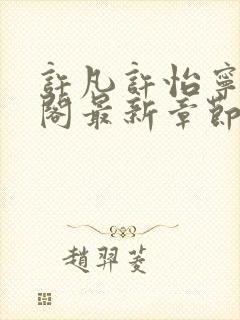 許凡許怡寧
閣最新章節
趙羿菱